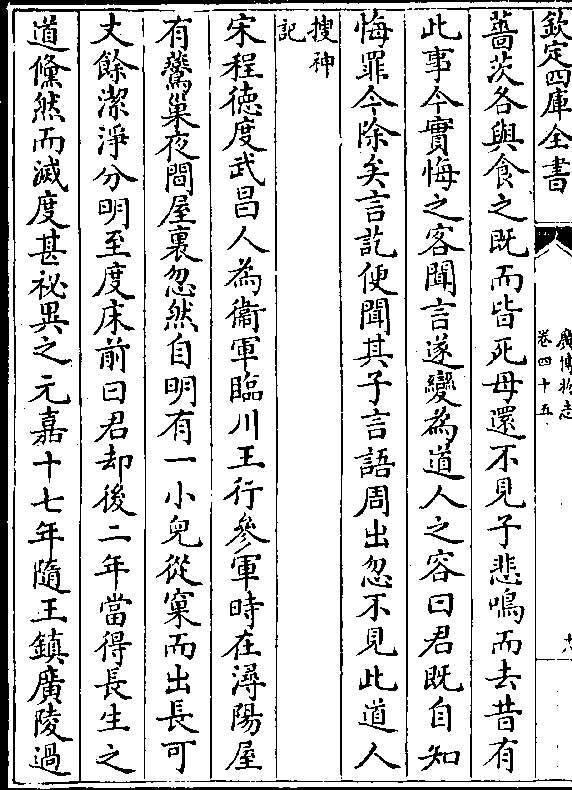 欽定四庫全書
廣博物志
卷四十五
薔茨各與食之既而皆死母還不見子悲鳴而去昔有
此事今實悔之客聞言遂變為道人之容曰君既自知
悔罪今除矣言訖便聞其子言語周出忽不見此道人
搜神
記
宋程徳度武昌人為衞軍臨川王行參軍時在潯陽屋
有鷰巢夜間屋裏忽然自明有一小兒從窠而出長可
丈餘潔淨分明至度床前曰君却後二年當得長生之
道儵然而滅度甚祕異之元嘉十七年隨王鎮廣陵過